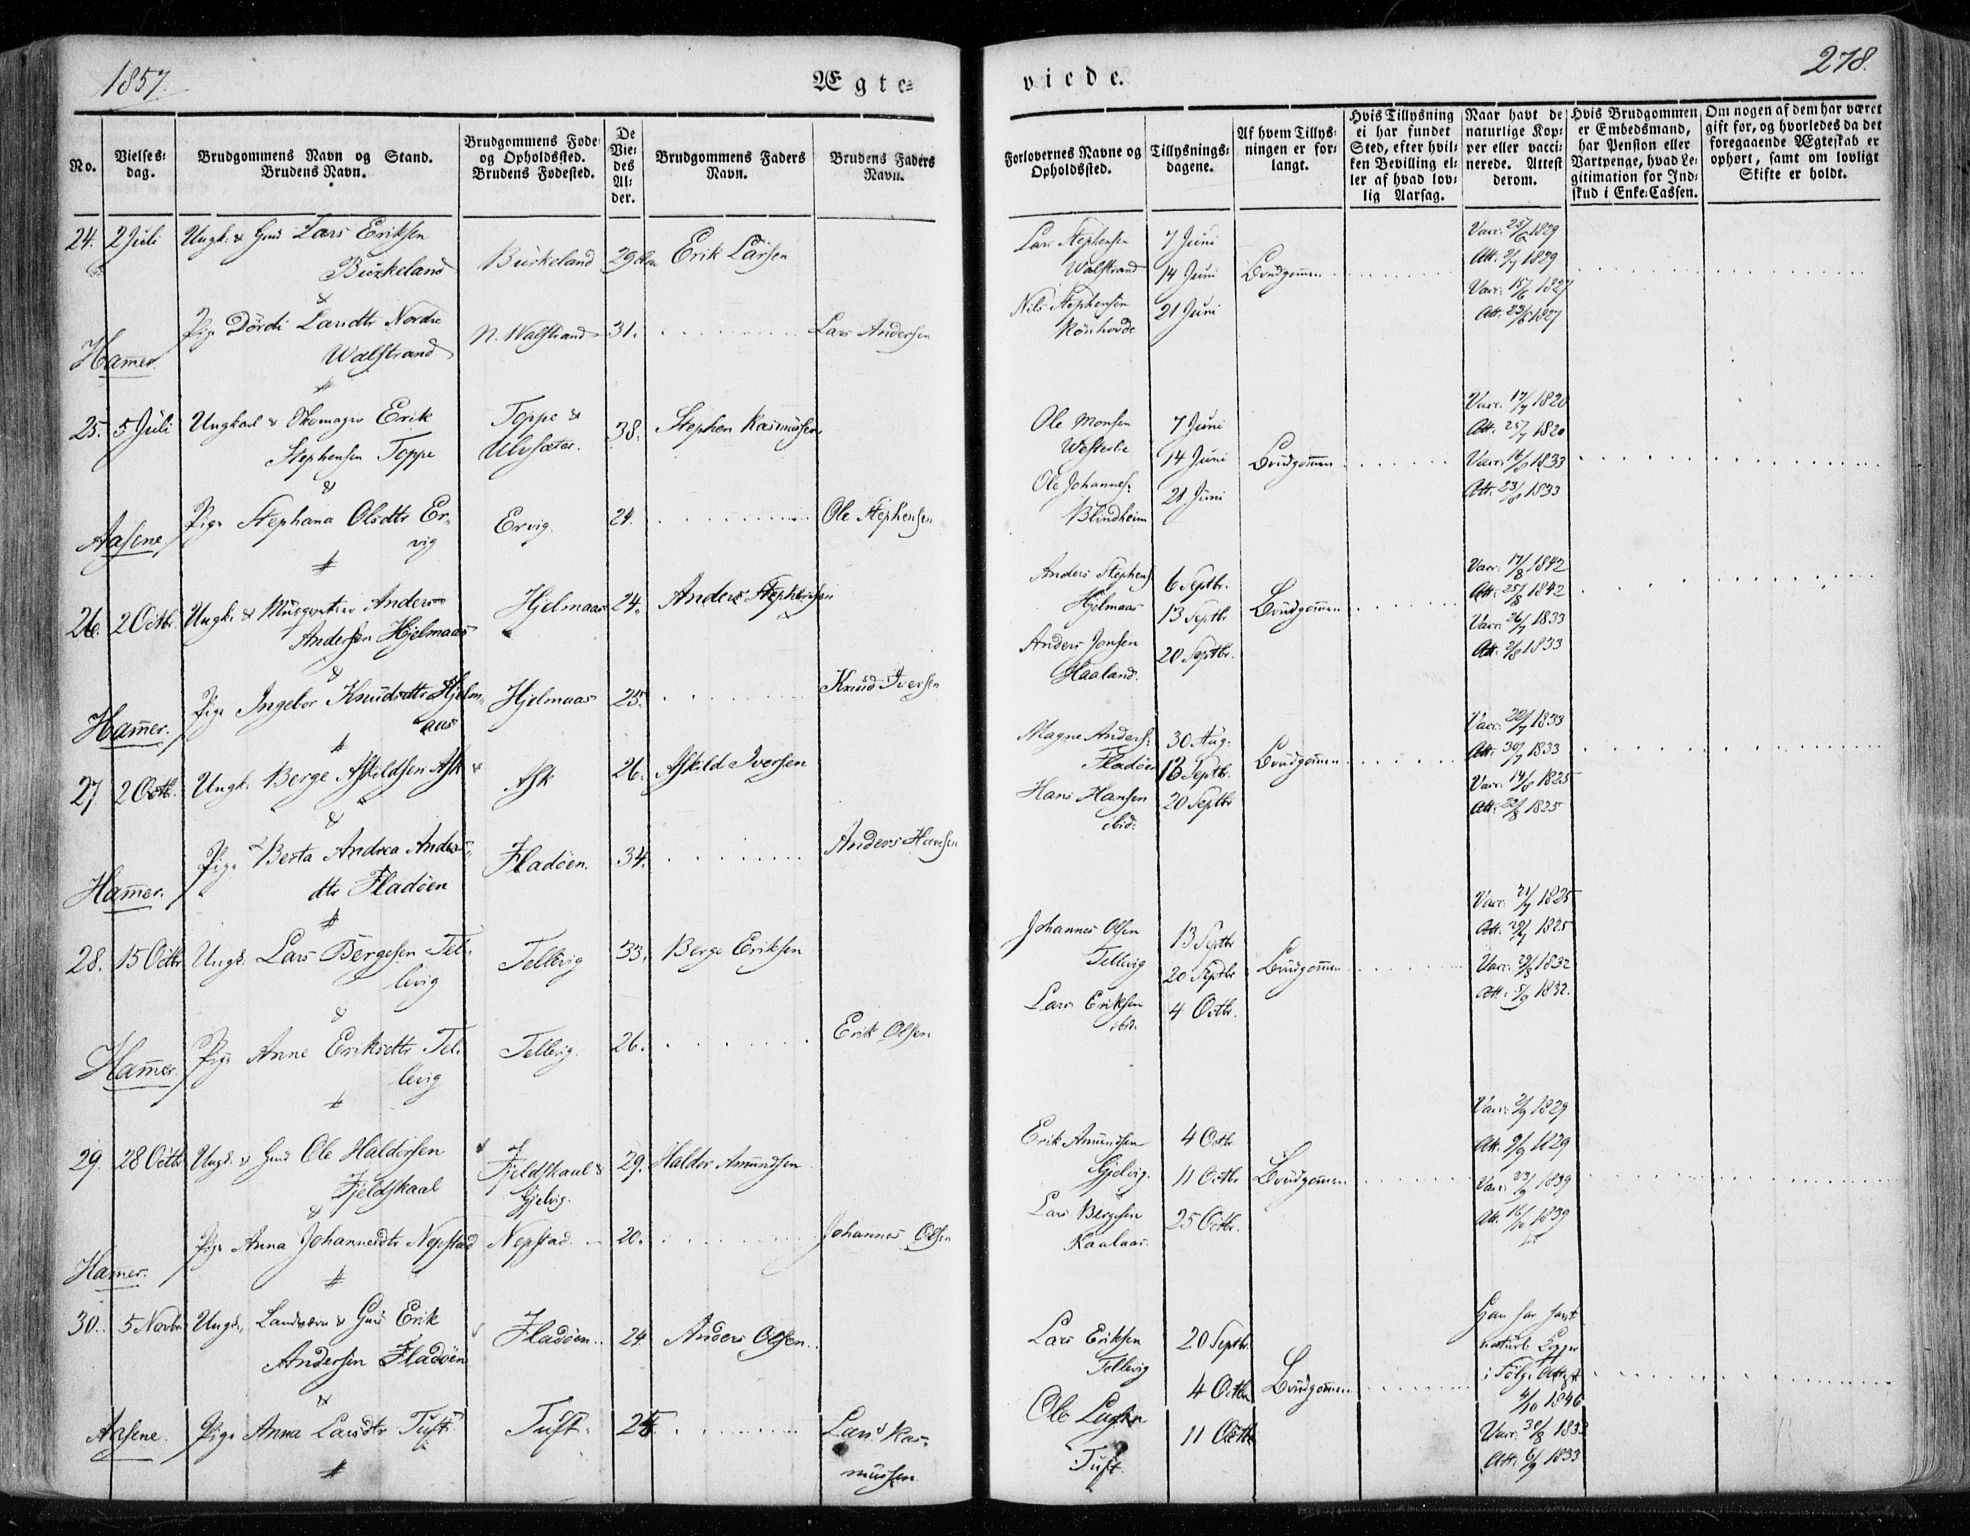 1857.
Ægte=
viede.
278.
No.
Vielses=
dag.
Brudgommens Navn og Stand.
Brudens Navn.
Brudgommens Føde=
og Opholdssted.
Brudens Fødested.
De
Vie=
des
Al=
der.
Brudgommens Faders
Navn.
Brudens Faders
Navn.
Forlovernes Navne og
Opholdssted.
Tillysnings=
dagene.
Af hvem Tillys=
ningen er for=
langt.
Hvis Tillysning
ei har fundet
Sted, efter hvil=
ken Bevilling el=
ler af hvad lov=
lig Aarsag.
Naar havt de
naturlige Kop=
per eller vacci=
nerede. Attest
derom.
Hvis Brudgommen
er Embedsmand,
har Pension eller
Vartpenge, hvad Le=
gitimation for Ind=
skud i Enke=Cassen.
Om nogen af dem har været
gift før, og hvorledes da det
foregaaende Ægteskab er
ophørt, samt om lovligt
Skifte er holdt.
24. 2 Juli Ungk. & Gmd Lars Eriksen
Burkeland
Burkeland 29 Erik Larsen
&
Pige Dördi Larsdtr Nordre
Walstrand
N. Walstrand 31. Lars Andersen
Hamer.
Lars Stephensen
Walstrand
Nils Stephensen
Rönhovde
7 Juni
14 Juni
21 Juni
Brudgommen
Vacc. 25/6 1829
Att. 2/7 1829
Vacc. 15/6 1827
Att. 23/6 1827
25. 5 Juli Ungkarl & Skomager Erik
Stephensen Toppe
Toppe &
Ulvsæter.
38. Stephen Rasmussen
&
Pige Stephana Olsdtr Er=
vig
Ervig 24. Ole Stephensen
Aasene
Ole Monsen
Westerlie
Ole Johannes:
Blindheim
7 Juni
14 Juni
21 Juni
Brudgommen
Vacc. 17/7 1820
Att. 25/7 1820
Vacc. 1833
Att. 1833
26. 2 Octbr. Ungk. & Anders
Andersen Hjelmaas
Hjelmaas 24. Anders Stephensen
&
Pige Ingebor Knudsdtr Hjelm=
aas
Hjelmaas 25. Knud Iversen
Hamer.
Anders Stephens:
Hjelmaas
Anders Jonsen
Haaland.
6 Septbr.
13 Septbr
20 Septbr.
Brudgommen
Vacc. 17/8 1842
Att. 25/8 1842
Vacc. 26/7 1833
Att. 2/8 1833
27 2 Octbr. Ungk. Berge Askildsen Ask
Ask 26. Askild Iversen
&
Pige Berta Andrea Anders=
dtr Fladöen
Fladöen. 34. Anders
Hamer.
Magne Anders:
Fladöen
Hans Hansen
ibid.
30 Aug.
13 Septbr.
20 Septbr
Brudgommen
Vacc. 22/7 1833
Att. 30/7 1833
Vacc. 1825
Att. 22/8 1825
28. 15 Octbr Ungk. Lars Bergesen Tel=
levig
Tellevig 33. Berge Eriksen
&
Pige Anne Eriksdtr Tel=
levig
Tellevig. 26. Erik Olsen
Hamer.
Johannes Olsen
Tellevig
Lars Eriksen
ibid.
13 Septbr
20 Septbr
4 Octbr.
Brudgommen
Vacc. 21/7 1825
Att. 29/7 1825
Vacc. 29/8 1832
Att. 5/9 1832.
29. 28 Octbr Ungk. & Gmd Ole Haldorsen
Fjeldskaal
Fjeldskaal &
Gjelvig.
29. Haldor Amundsen
&
Pige Anna Johannesdtr Nepstad
Nepstad. 20. Johannes Olsen
Hamer.
Erik Amundsen
Gjelvig.
Lars Bergesen
Kaalaas
4 Octbr
11 Octbr
25 Octbr.
Brudgommen
Vacc. 2/9 1829
Att. 9/9 1829
Vacc. 23/9 1839
Att. 16/10 1839
30. 5 Novbr Ungk., Landværn & Gmd Erik
Andersen Fladöen
Fladöen. 24. Anders Olsen.
&
Pige Anna Larsdtr Tuft
Tuft. 25. Lars Ras=
mussen
Aasene.
Lars Eriksen
Tellevig
Ole Larsen
Tuft.
20 Septbr.
4 Octbr
11 Octbr
Brudgommen
Han har havt
naturl. Copper
i Følge Attest
4/10 1846
Vacc. 30/8 1833
Att. 6/9 1833